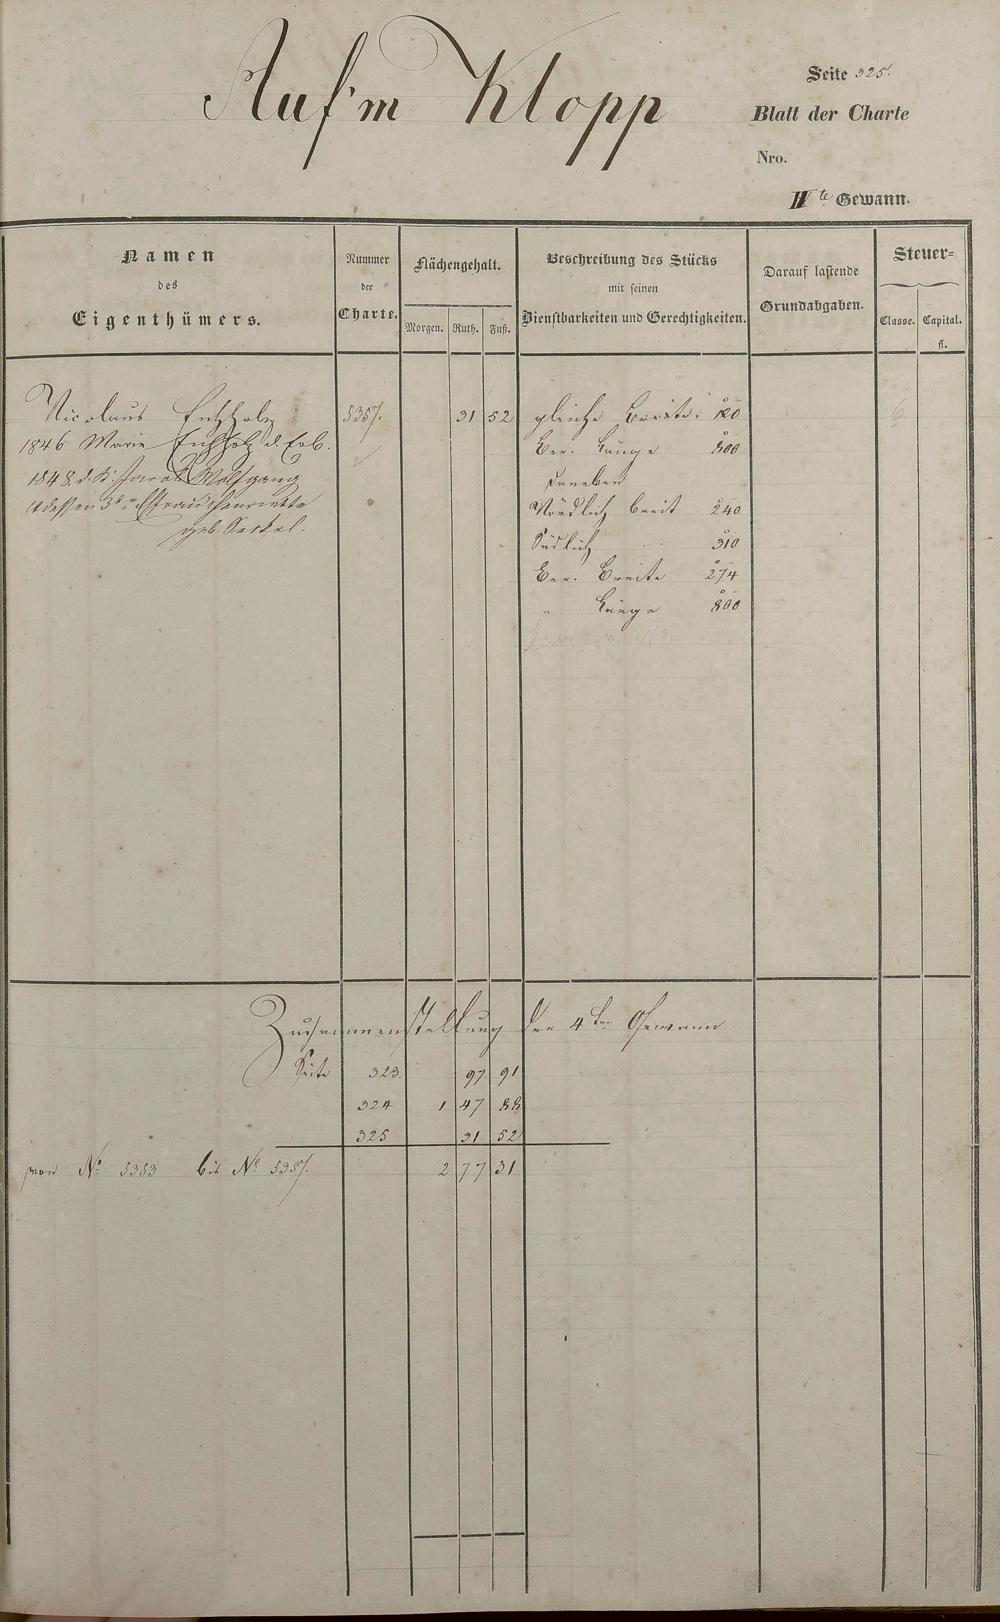 Auf'm Klopp
Seite 325.
Blatt der Charte
Nro.
te Gewann.
Namen
des
Eigenthümers.
Nummer
der
Charte.
Flächengehalt.
Morgen. Ruth. Fuß.
Beschreibung des Stücks
mit seinen
Dienstbarkeiten und Gerechtigkeiten.
Darauf lastende
Grundabgaben.
Steuer=
Classe. Capital.
fl.
Nicolaus 5357. 31 52 gleiche Breite: 120
1846 Marie d. Erb. Ber. Länge 800
1848. d. K. Jacob Wolfgang daneben
Ehefrau Henriette Nördlich breit 240
geb. Seckel. Südlich 310
Ber. Breite 274
" Länge 800
6
Zusammenstellung der 4ten Gewann
Seite 323. 97 91
324 1 47 88
325 31 52
von No. 5353 bis No. 5357. 2 77 31